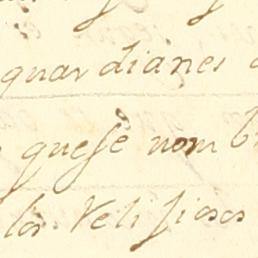 guardianes
quese nomb
los Religiosos